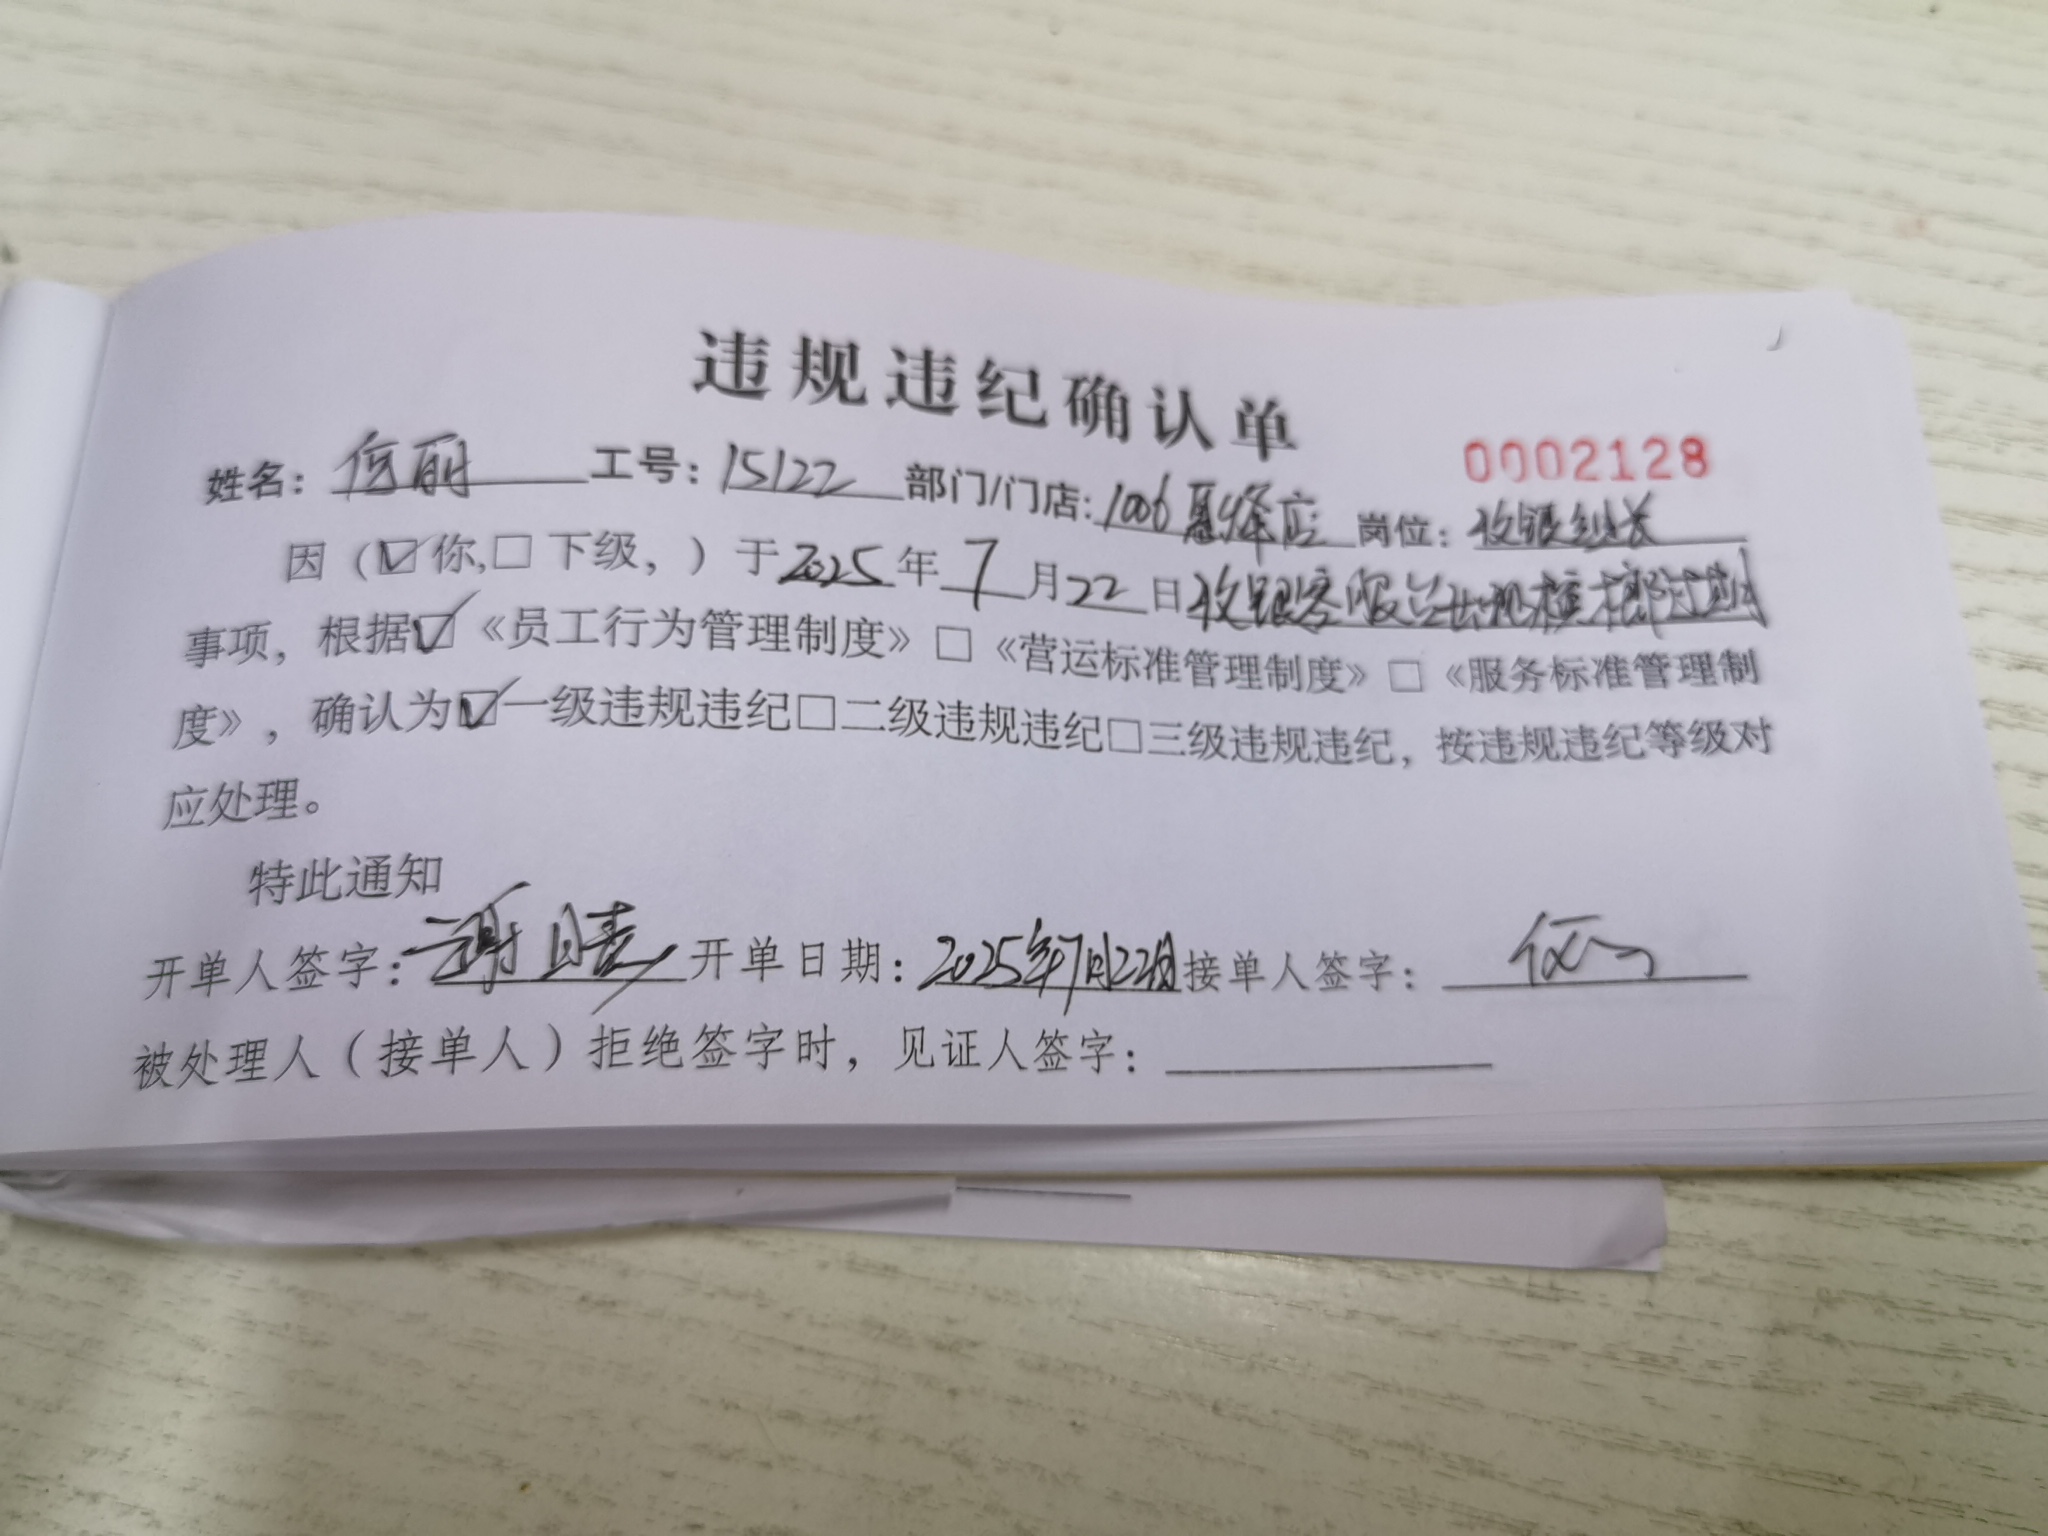 违规违纪确认单
0002128
姓名：何丽 工号：15122 部门/门店：1006惠绎店 岗位：收银组长
因（☑你,□下级，）于2025年7月22日收银客服台出现槟榔过期
事项，根据☑《员工行为管理制度》□《营运标准管理制度》□《服务标准管理制
度》，确认为☑一级违规违纪□二级违规违纪□三级违规违纪，按违规违纪等级对
应处理。
特此通知
开单人签字：谢晴 开单日期：2025年7月22日 接单人签字：
被处理人（接单人）拒绝签字时，见证人签字：